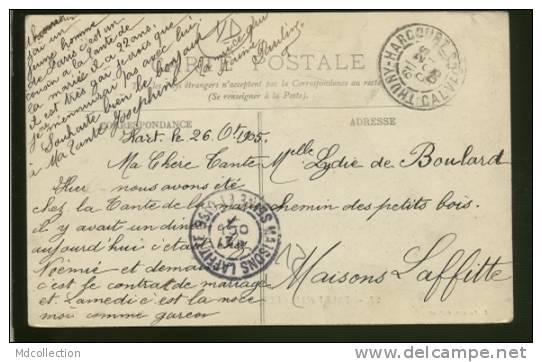 d'honneur
par un
jeune homme
de Paris c'est un
cousin a la tante de
la mariée il a 22 ans.
il est très gai je crois que
je m'ennuirai pas avec lui
Souhaite bien le bonjour
à Ma Tante Joséphine
Ta nièce qui
t'aime
Pauline
CARTE POSTALE
étrangers n'acceptent pas la Correspondance au recto
(Se renseigner à la Poste).
CORRESPONDANCE
ADRESSE
THURY-HARCOURT
CALVADOS
Hart. le 26 Obt 1905.
Ma Chère Tante
Hier nous avons été
chez la Tante de la mariée
il y avait un dîner
aujourd'hui c'était
Noémie et demain
c'est le contrat de mariage
et Samedi c'est la noce
moi comme garçon
Melle Lydie de Boulard
chemin des petits bois.
Maisons Laffitte
MAISONS LAFFITTE
Mdcollection
http://www.delcampe.net